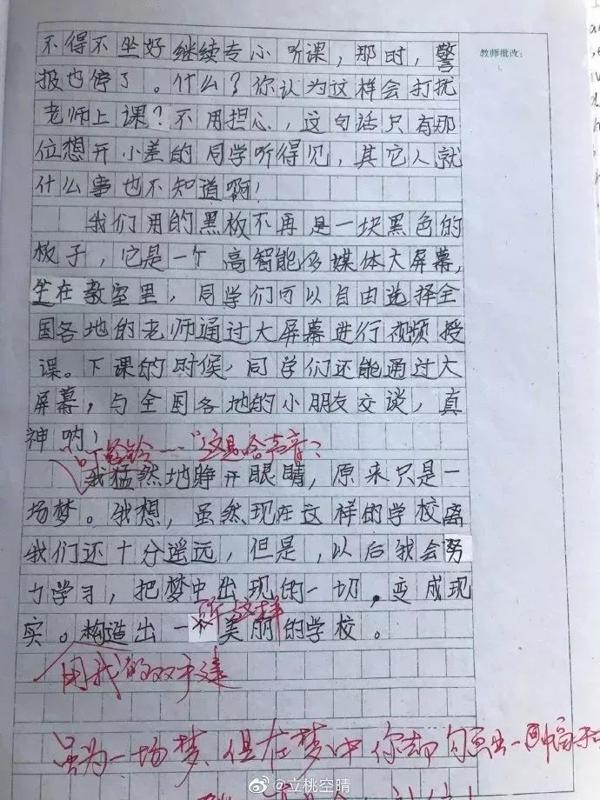 教师批改:
不得不坐好继续专心听课，那时，警
报也停了。什么？你认为这样会打扰
老师上课？不用担心，这句话只有那
位想开小差的同学听得见，其它人就
什么事也不知道啊！
我们用的黑板不再是一块黑色的
板子，它是一个高智能多媒体大屏幕，
坐在教室里，同学们可以自由选择全
国各地的老师通过大屏幕进行视频授
课。下课的时候，同学们还能通过大
屏幕，与全国各地的小朋友交谈，真
神哟！
“叮铃铃……”这是什么声音？
我猛然地睁开眼睛，原来只是一
场梦。我想，虽然现在这样的学校离
我们还十分遥远，但是，以后我会努
力学习，把梦中出现的一切，变成现
实。构造出一个美丽的学校。
所这样
用我的双手建
虽为一场梦，但在梦中你却勾画出一幅
@立桃空晴